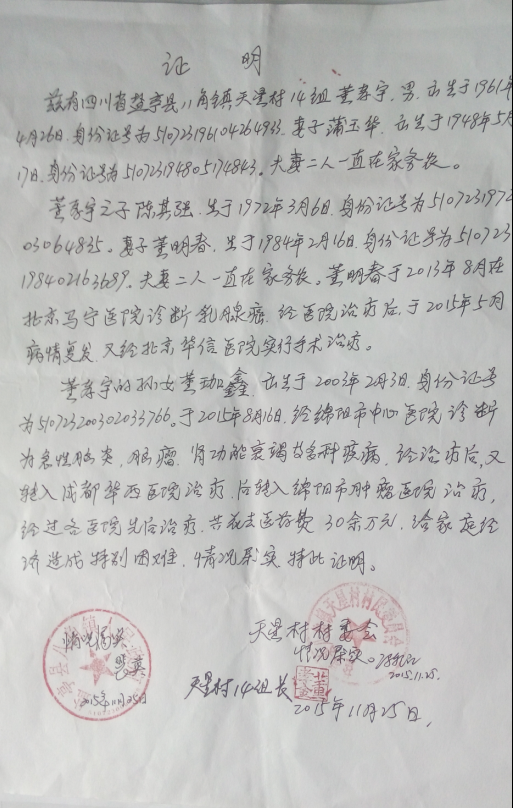 证 明
兹有四川省盐亭县八角镇天星村14组董孝宇,男,出生于1961年
4月26日,身份证号为510723196104264933.妻子蒲玉华,出生于1948年5月
17日,身份证号为510723194805174843.夫妻二人一直在家务农。
董孝宇之子陈其强.生于1972年3月6日,身份证号为5107231972
03064835.妻子董明春.生于1984年2月16日,身份证号为510723
198402163689.夫妻二人一直在家务农。董明春于2013年8月在
北京马宁医院诊断乳腺癌,经医院治疗后,于2015年5月
病情复发,又经北京华信医院实行手术治疗。
董孝宇的孙女董珈鑫,出生于2003年2月3日,身份证号
为510723200302033766.于2015年8月16日,经绵阳市中心医院诊断
为急性肠炎,眼瘤,肾功能衰竭等多种疾病,经治疗后,又
转入成都华西医院治疗,后转入绵阳市肿瘤医院治疗,
经过各医院先后治疗,共花去医药费30余万元,给家庭经
济造成特别困难,情况属实,特此证明。
天星村村委会
情况属实
情况属实。
2015.11.25.
2015年11月25日
天星村14组长
2015年11月25日.